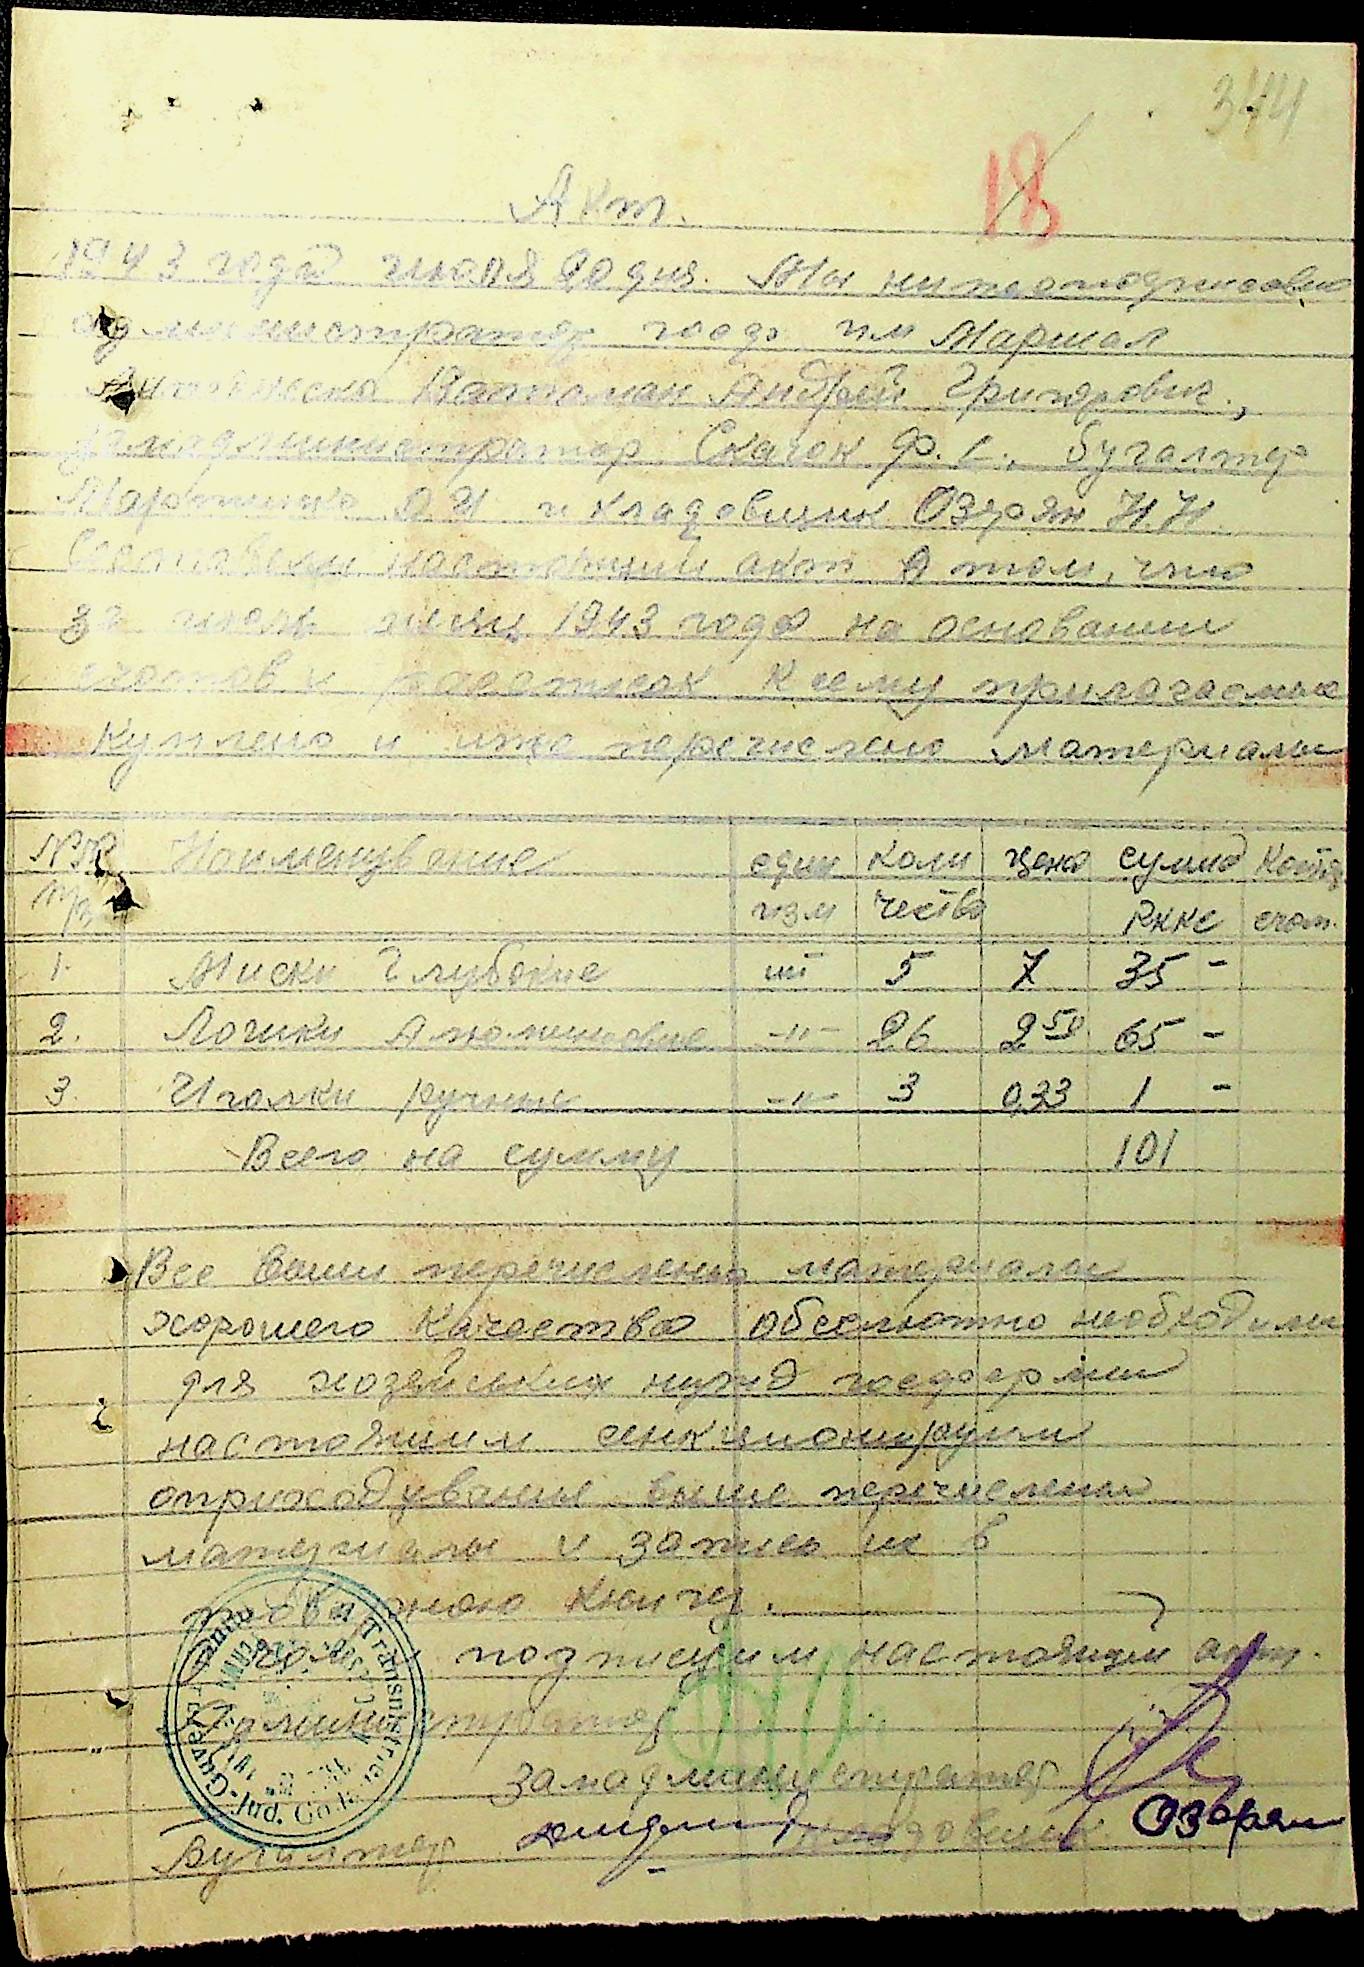 344
18
Акт.
1943 года июля 20 дня. Мы нижеподписовш
администратор госф. им Маршал
Антонеска Ватаман Андрей Григоровик,
замадминистратор Скачок Ф. С., бугалтер
О И и кладовщик Озарян Н. Н.
Составели настоящий акт о том, что
за июль месяц 1943 года на основании
счотов и росписок к сему прилогаемые
куплено и ниже перечислено материалы
№№ Наименувание един коли цена сумма Контр
п/з изм чество Rккс счот.
1. Миски Глубокие шт 5 7 35 -
2. Ложки Алюминовые -"- 26 2 50 65 -
3. Иголки ручные -"- 3 0,33 1 -
Всего на сумму 101
Все выши перечислены материалы
хорошего качества обсолютно необходимы
для хозяйських нужд госфермы
настоящим сенкционируим
оприходувания выше перечислены
материалы и запись их в
книгу.
подписуим настоящий акт.
Администратор
замадминистратор
Бугалтер кладовщик Озарян
Guvern Transnistriei
Jud.